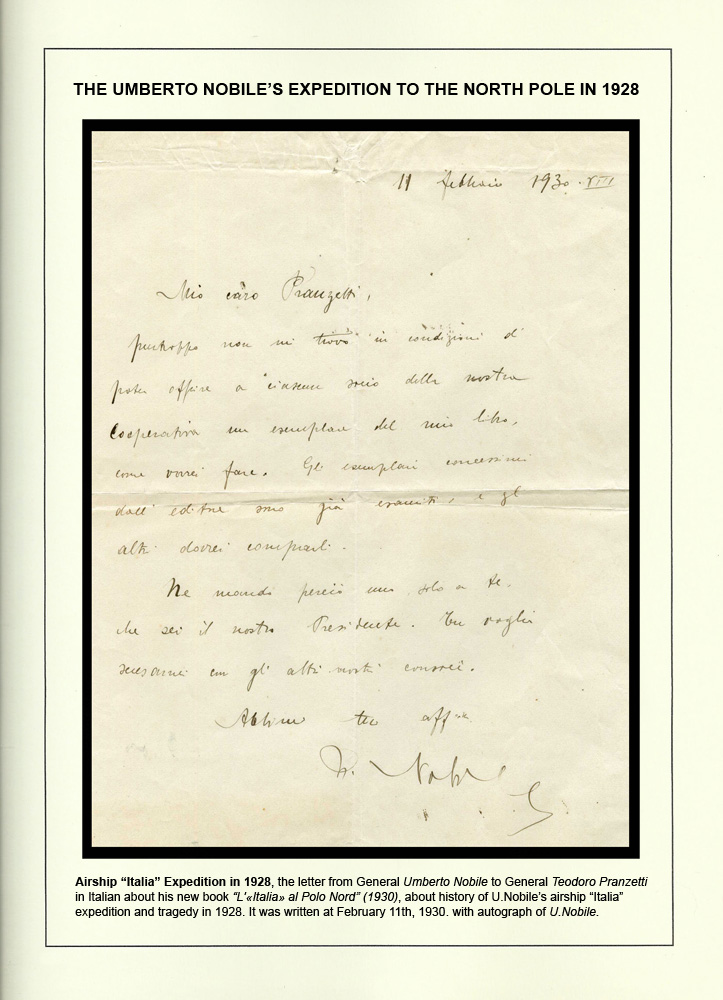 THE UMBERTO NOBILE'S EXPEDITION TO THE NORTH POLE IN 1928
11 febbraio 1930. VIII
Mio caro Pranzetti,
purtroppo non mi trovo in condizioni di
poter offrire a ciascun socio della nostra
Cooperativa un esemplare del mio libro,
come vorrei fare. Gli esemplari concessimi
dall' editore sono già esauriti, e gl
altri dovrei comprarli.
Ne mando perciò uno solo a te.
che sei il nostro Presidente. Tu voglia
scusarmi con gl' altri nostri consoci.
tuo aff
U. Nobile
Airship “Italia” Expedition in 1928, the letter from General Umberto Nobile to General Teodoro Pranzetti
in Italian about his new book “L'«Italia» al Polo Nord” (1930), about history of U.Nobile's airship “Italia”
expedition and tragedy in 1928. It was written at February 11th, 1930. with autograph of U.Nobile.